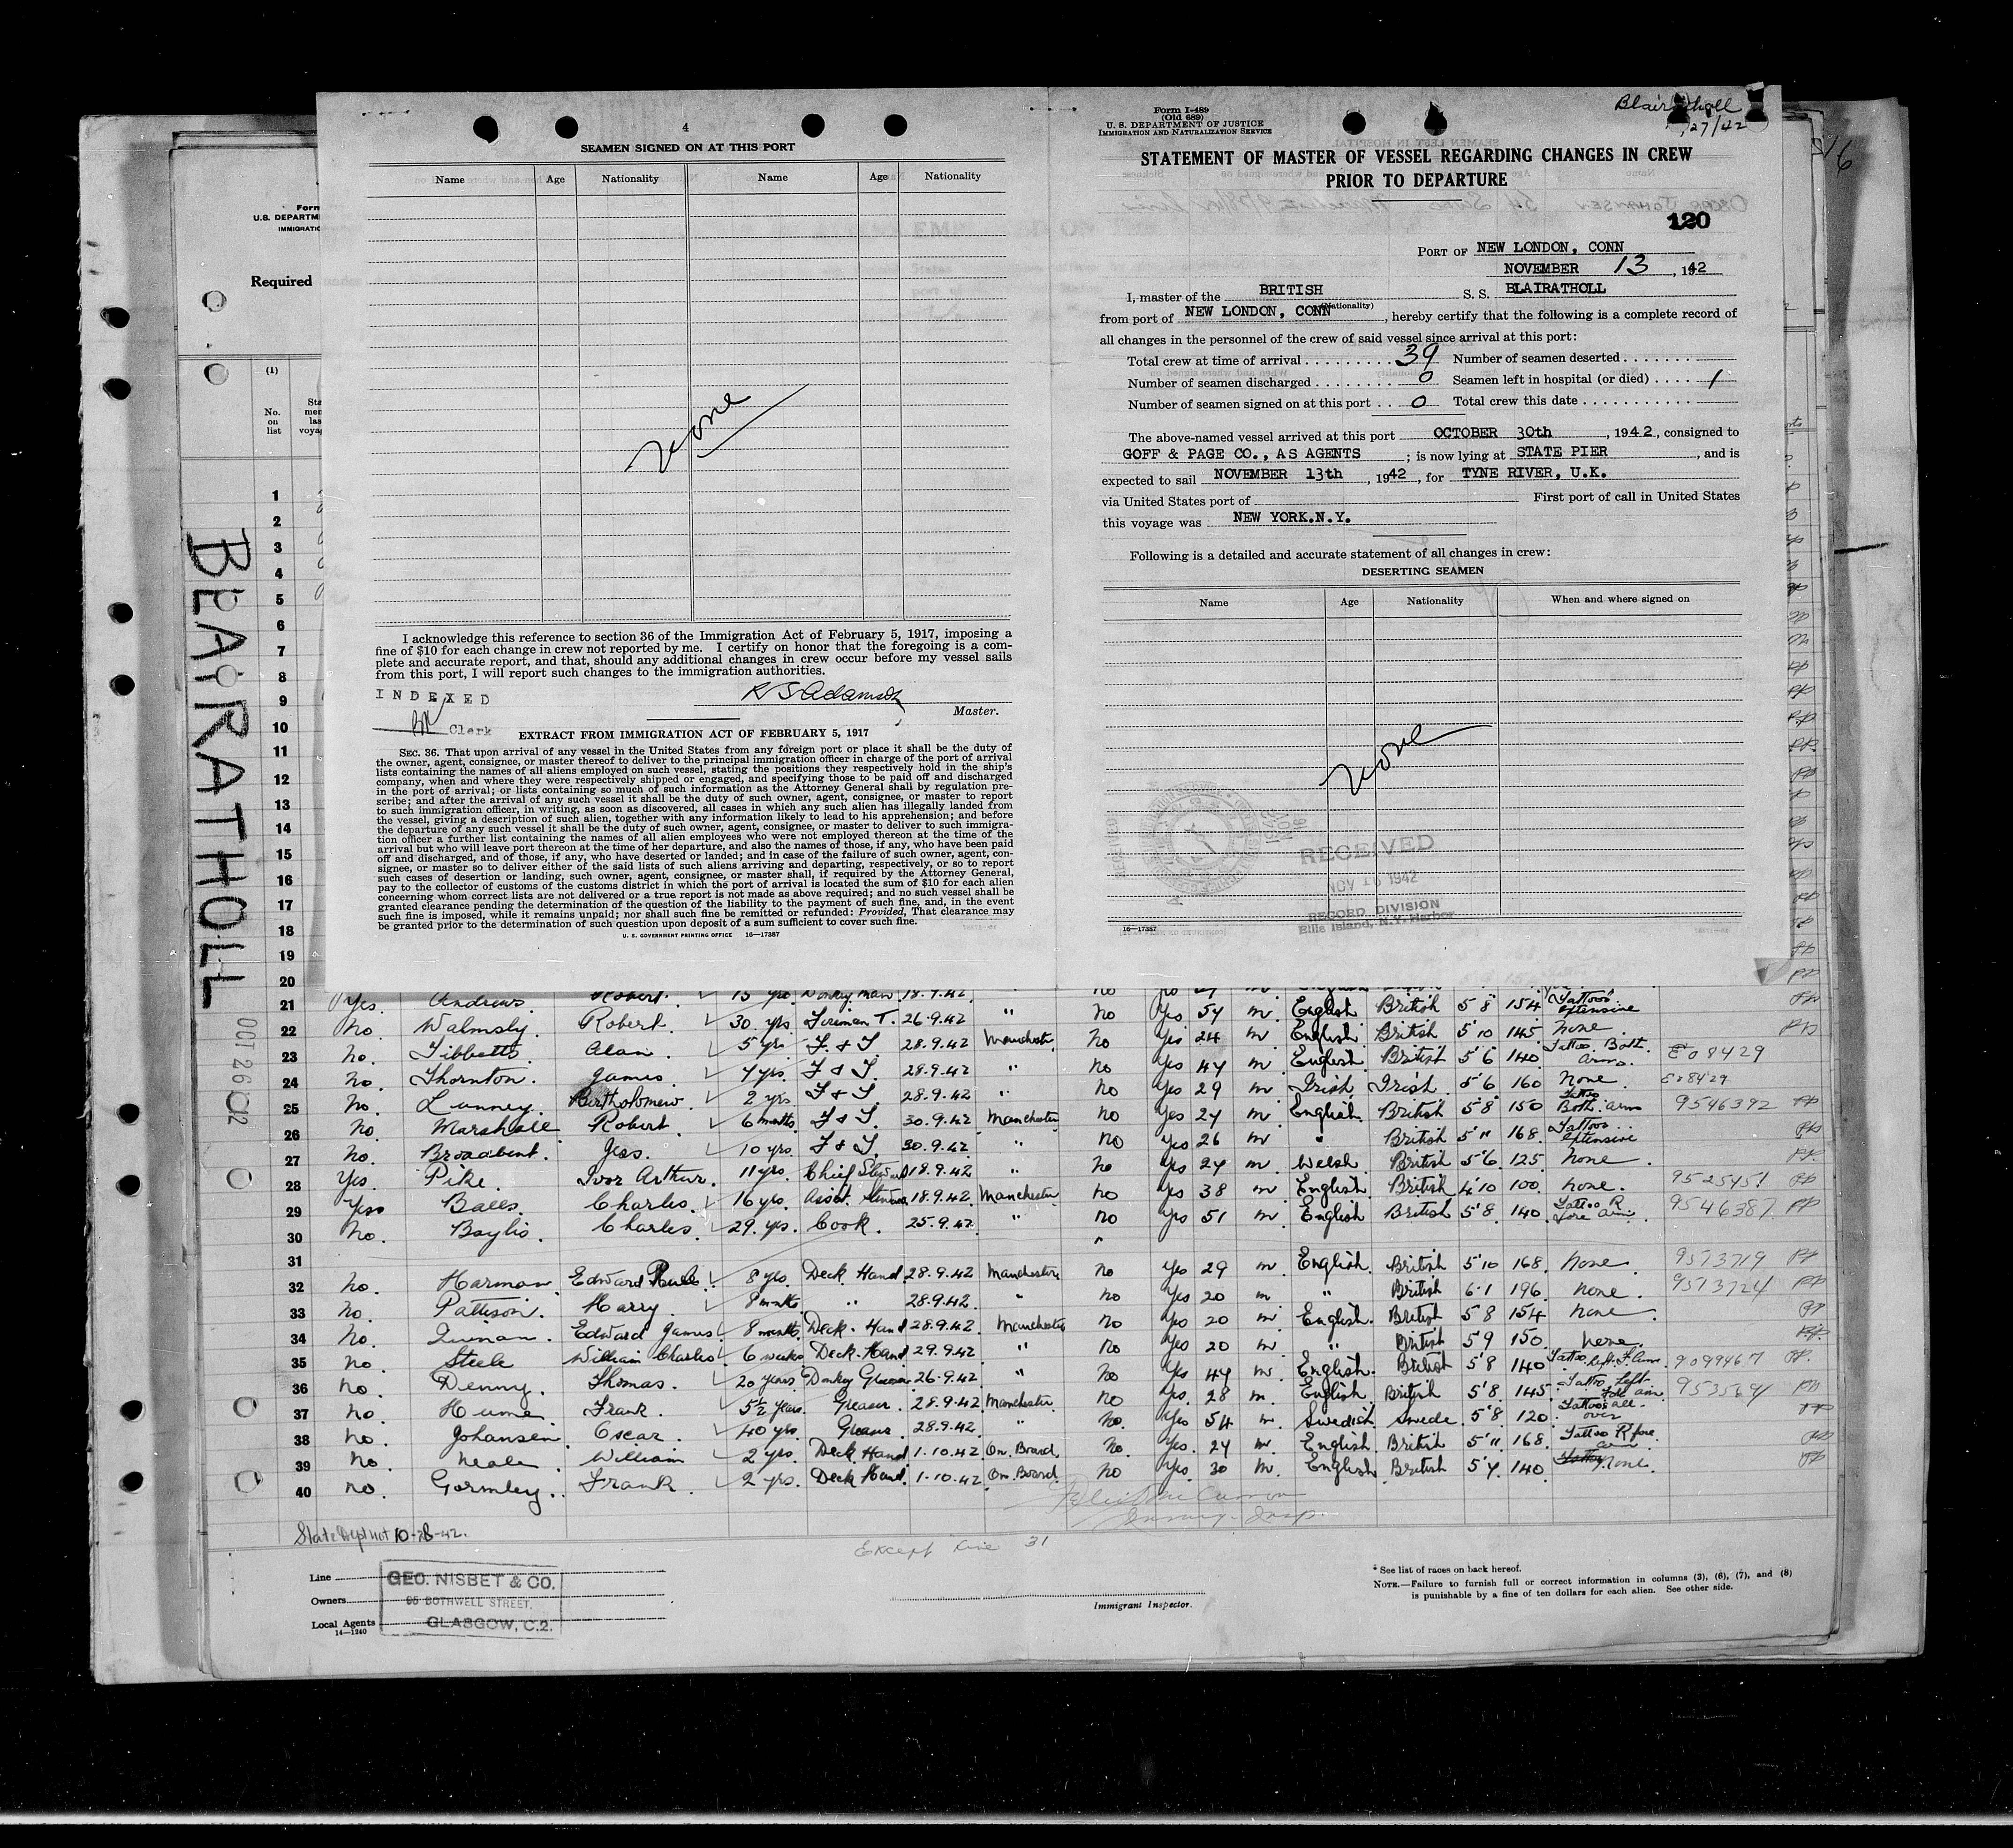 Blairatholl
27/42
16
4
SEAMEN SIGNED ON AT THIS PORT
Name Age Nationality Name Age Nationality
None
I acknowledge this reference to section 36 of the Immigration Act of February 5, 1917, imposing a
fine of $10 for each change in crew not reported by me. I certify on honor that the foregoing is a com-
plete and accurate report, and that, should any additional changes in crew occur before my vessel sails
from this port, I will report such changes to the immigration authorities.
INDEXED
Clerk
Master.
EXTRACT FROM IMMIGRATION ACT OF FEBRUARY 5, 1917
SEC. 36. That upon arrival of any vessel in the United States from any foreign port or place it shall be the duty of
the owner, agent, consignee, or master thereof to deliver to the principal immigration officer in charge of the port of arrival
lists containing the names of all aliens employed on such vessel, stating the positions they respectively hold in the ship's
company, when and where they were respectively shipped or engaged, and specifying those to be paid off and discharged
in the port of arrival; or lists containing so much of such information as the Attorney General shall by regulation pre-
scribe; and after the arrival of any such vessel it shall be the duty of such owner, agent, consignee, or master to report
to such immigration officer, in writing, as soon as discovered, all cases in which any such alien has illegally landed from
the vessel, giving a description of such alien, together with any information likely to lead to his apprehension; and before
the departure of any such vessel it shall be the duty of such owner, agent, consignee, or master to deliver to such immigra-
tion officer a further list containing the names of all alien employees who were not employed thereon at the time of the
arrival but who will leave port thereon at the time of her departure, and also the names of those, if any, who have been paid
off and discharged, and of those, if any, who have deserted or landed; and in case of the failure of such owner, agent, con-
signee, or master so to deliver either of the said lists of such aliens arriving and departing, respectively, or so to report
such cases of desertion or landing, such owner, agent, consignee, or master shall, if required by the Attorney General,
pay to the collector of customs of the customs district in which the port of arrival is located the sum of $10 for each alien
concerning whom correct lists are not delivered or a true report is not made as above required; and no such vessel shall be
granted clearance pending the determination of the question of the liability to the payment of such fine, and, in the event
such fine is imposed, while it remains unpaid; nor shall such fine be remitted or refunded: Provided, That clearance may
be granted prior to the determination of such question upon deposit of a sum sufficient to cover such fine.
U. S. GOVERNMENT PRINTING OFFICE 16—17387
Form I-489
(Old 689)
U. S. DEPARTMENT OF JUSTICE
IMMIGRATION AND NATURALIZATION SERVICE
STATEMENT OF MASTER OF VESSEL REGARDING CHANGES IN CREW
PRIOR TO DEPARTURE
120
PORT OF NEW LONDON, CONN
NOVEMBER 13, 1942
I, master of the BRITISH S. S. BLAIRATHOLL
(Nationality)
from port of NEW LONDON, CONN, hereby certify that the following is a complete record of
all changes in the personnel of the crew of said vessel since arrival at this port:
Total crew at time of arrival 39 Number of seamen deserted
Number of seamen discharged 0 Seamen left in hospital (or died) 1
Number of seamen signed on at this port 0 Total crew this date
The above-named vessel arrived at this port OCTOBER 30th, 1942, consigned to
GOFF & PAGE CO., AS AGENTS; is now lying at STATE PIER, and is
expected to sail NOVEMBER 13th, 1942, for TYNE RIVER, U.K.
via United States port of First port of call in United States
this voyage was NEW YORK.N.Y.
Following is a detailed and accurate statement of all changes in crew:
DESERTING SEAMEN
Name Age Nationality When and where signed on
None
RECEIVED
NOV 16 1942
RECORD DIVISION
Ellis Island, N.Y. Harbor
16—17387
Form
U. S. DEPARTM
IMMIGRATIO
Required
(1)
No. on list
BLAIRATHOLL
OCT 26 1942
1
2
3
4
5
6
7
8
9
10
11
12
13
14
15
16
17
18
19
20
21 Yes. Andrews Robert. 15 yrs Donkey man 18.9.42
22 No Walmsly. Robert. 30 yrs. Fireman T. 26.9.42 " No Yes 54 m English British 5 8 154 Tattoos extensive
23 No. Tibbetts Alan. 5 yrs F & T 28.9.42 Manchester No Yes 24 m English British 5'10 145 None
24 No. Thornton. James. 4 yrs. F & T 28.9.42 " No Yes 44 m English British 5'6 140 Tattoo Both arms. E08429
25 No. Lunney. Bartholomew. 2 yrs F & T. 28.9.42 " No Yes 29 m Irish Irish 5'6 160 None. E08429
26 No Marshall Robert. 6 months. F & T. 30.9.42 Manchester No Yes 24 m English British 5'8 150 Tattoo Both arm 9546392
27 No. Broadbent. Jas. 10 yrs. F & T. 30.9.42 " No Yes 26 m " British 5'" 168 Tattoos extensive
28 Yes. Pike. Ivor Arthur. 11 yrs. Chief Steward 18.9.42 " No Yes 24 m. Welsh British 5'6 125 None.
29 Yes Bales. Charles. 16 yrs. Asst. Steward 18.9.42 Manchester No Yes 38 m English British 4'10 100 None. 9525451
30 No. Baylis. Charles. 29. yrs. Cook. 25.9.42 " No Yes 51 m English British 5'8 140 Tattoo R fore arm. 9546387
31
32 No. Harman Edward 8 yrs. Deck Hand 28.9.42 Manchester No Yes 29 m English. British 5'10 168 None. 9513719
33 No. Pattison. Harry. 8 months " 28.9.42 " No Yes 20 m " British 6.1 196 None. 9513724
34 No. Quinan. Edward James 8 months. Deck Hand 28.9.42 Manchester No Yes 20 m English. British 5 8 154 None.
35 No Steele William Charles 6 weeks Deck Hand 29.9.42 " No Yes 20 m. " British 5 9 150 None.
36 No. Denny. Thomas. 20 years Donkey Greaser 26.9.42 " No Yes 44 m. English. British 5'8 140 Tattoo Left F. Arm. 9099467
37 No. Hume. Frank. 5½ years. Greaser. 28.9.42 Manchester No Yes. 28 m. English British 5'8 145 Tattoo Left Fore arm
38 No. Johansen Oscar. 40 yrs. Greaser 28.9.42. " No. Yes 54 m Swedish Swede 5'8 120 Tattoos all over
39 No Neale. William 2 yrs. Deck Hand 1.10.42 On Board No. Yes. 24 m English British 5'" 168 Tattoo R fore arm
40 No. Gormley. Frank 2 yrs. Deck Hand. 1.10.42 On Board No Yes. 30 m. English British 5'4 140 None.
State Dept not 10-28-42.
Except Line 31
Line
Owners
Local Agents
14—1240
GEO. NISBET & CO.
95 BOTHWELL STREET,
GLASGOW, C.2.
Immigrant Inspector.
* See list of races on back hereof.
NOTE.—Failure to furnish full or correct information in columns (3), (6), (7), and (8)
is punishable by a fine of ten dollars for each alien. See other side.